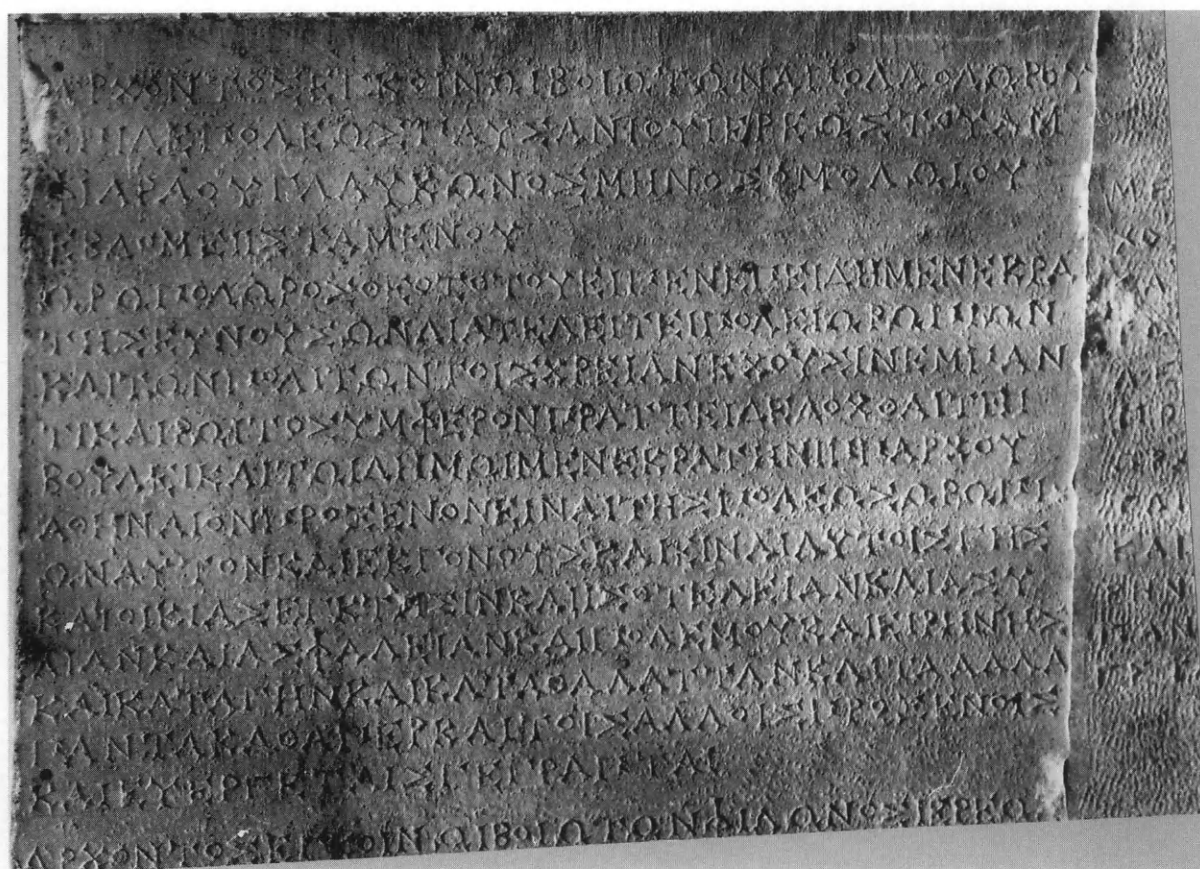 ΑΡΧΟΝΤΟΣΕΓΚΟΙΝΩΙΒΟΙΩΤΩΝΑΠΟΛΛΟΔΩΡΟΥ
ΕΠΙΔΕΠΟΛΕΩΣΠΑΥΣΑΝΙΟΥΙΕΡΕΩΣΤΟΥΑΜ
ΦΙΑΡΑΟΥΓΛΑΥΚΩΝΟΣΜΗΝΟΣΟΜΟΛΩΙΟΥ
ΕΒΔΟΜΕΙΙΣΤΑΜΕΝΟΥ
ΩΡΩΠΟΔΩΡΟΣΘΕΟΖΟΤΟΥΕΙΠΕΝΕΠΕΙΔΗΜΕΝΕΚΡΑ
ΤΗΣΕΥΝΟΥΣΩΝΔΙΑΤΕΛΕΙΤΕΙΠΟΛΕΙΩΡΩΠΙΩΝ
ΚΑΙΤΩΝΠΟΛΙΤΩΝΤΟΙΣΧΡΕΙΑΝΕΧΟΥΣΙΝΕΜΠΑΝ
ΤΙΚΑΙΡΩΙΤΟΣΥΜΦΕΡΟΝΠΡΑΤΤΕΙΔΕΔΟΧΘΑΙΤΗΙ
ΒΟΥΛΕΙΚΑΙΤΩΙΔΗΜΩΙΜΕΝΕΚΡΑΤΗΝΙΠΠΑΡΧΟΥ
ΑΘΗΝΑΙΟΝΠΡΟΞΕΝΟΝΕΙΝΑΙΤΗΣΠΟΛΕΩΣΩΡΩΠΙ
ΩΝΑΥΤΟΝΚΑΙΕΚΓΟΝΟΥΣΚΑΙΕΙΝΑΙΑΥΤΟΙΣΓΗΣ
ΚΑΙΟΙΚΙΑΣΕΓΚΤΗΣΙΝΚΑΙΙΣΟΤΕΛΕΙΑΝΚΑΙΑΣΥ
ΛΙΑΝΚΑΙΑΣΦΑΛΕΙΑΝΚΑΙΠΟΛΕΜΟΥΚΑΙΕΙΡΗΝΗΣ
ΚΑΙΚΑΤΑΓΗΝΚΑΙΚΑΤΑΘΑΛΑΤΤΑΝΚΑΙΤΑΑΛΛΑ
ΠΑΝΤΑΚΑΘΑΠΕΡΚΑΙΤΟΙΣΑΛΛΟΙΣΠΡΟΞΕΝΟΙΣ
ΚΑΙΕΥΕΡΓΕΤΑΙΣΓΕΓΡΑΠΤΑΙ
ΑΡΧΟΝΤΟΣΕΓΚΟΙΝΩΙΒΟΙΩΤΩΝΦΙΛΩΝΟΣΙΕΡΕΩ